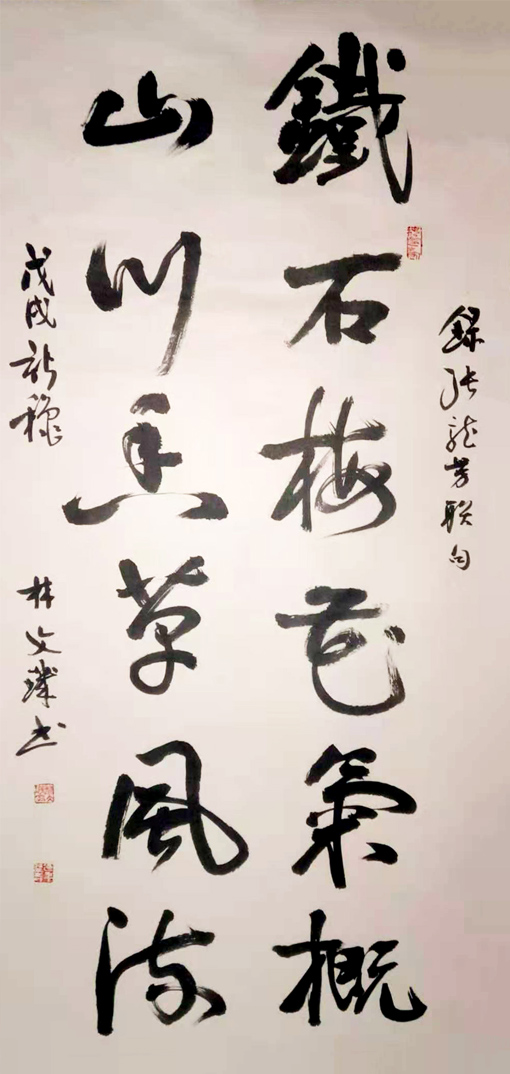 錄張龍芳联句
鐵石梅花氣概
山川香草風流
戊戌新穐
林文書